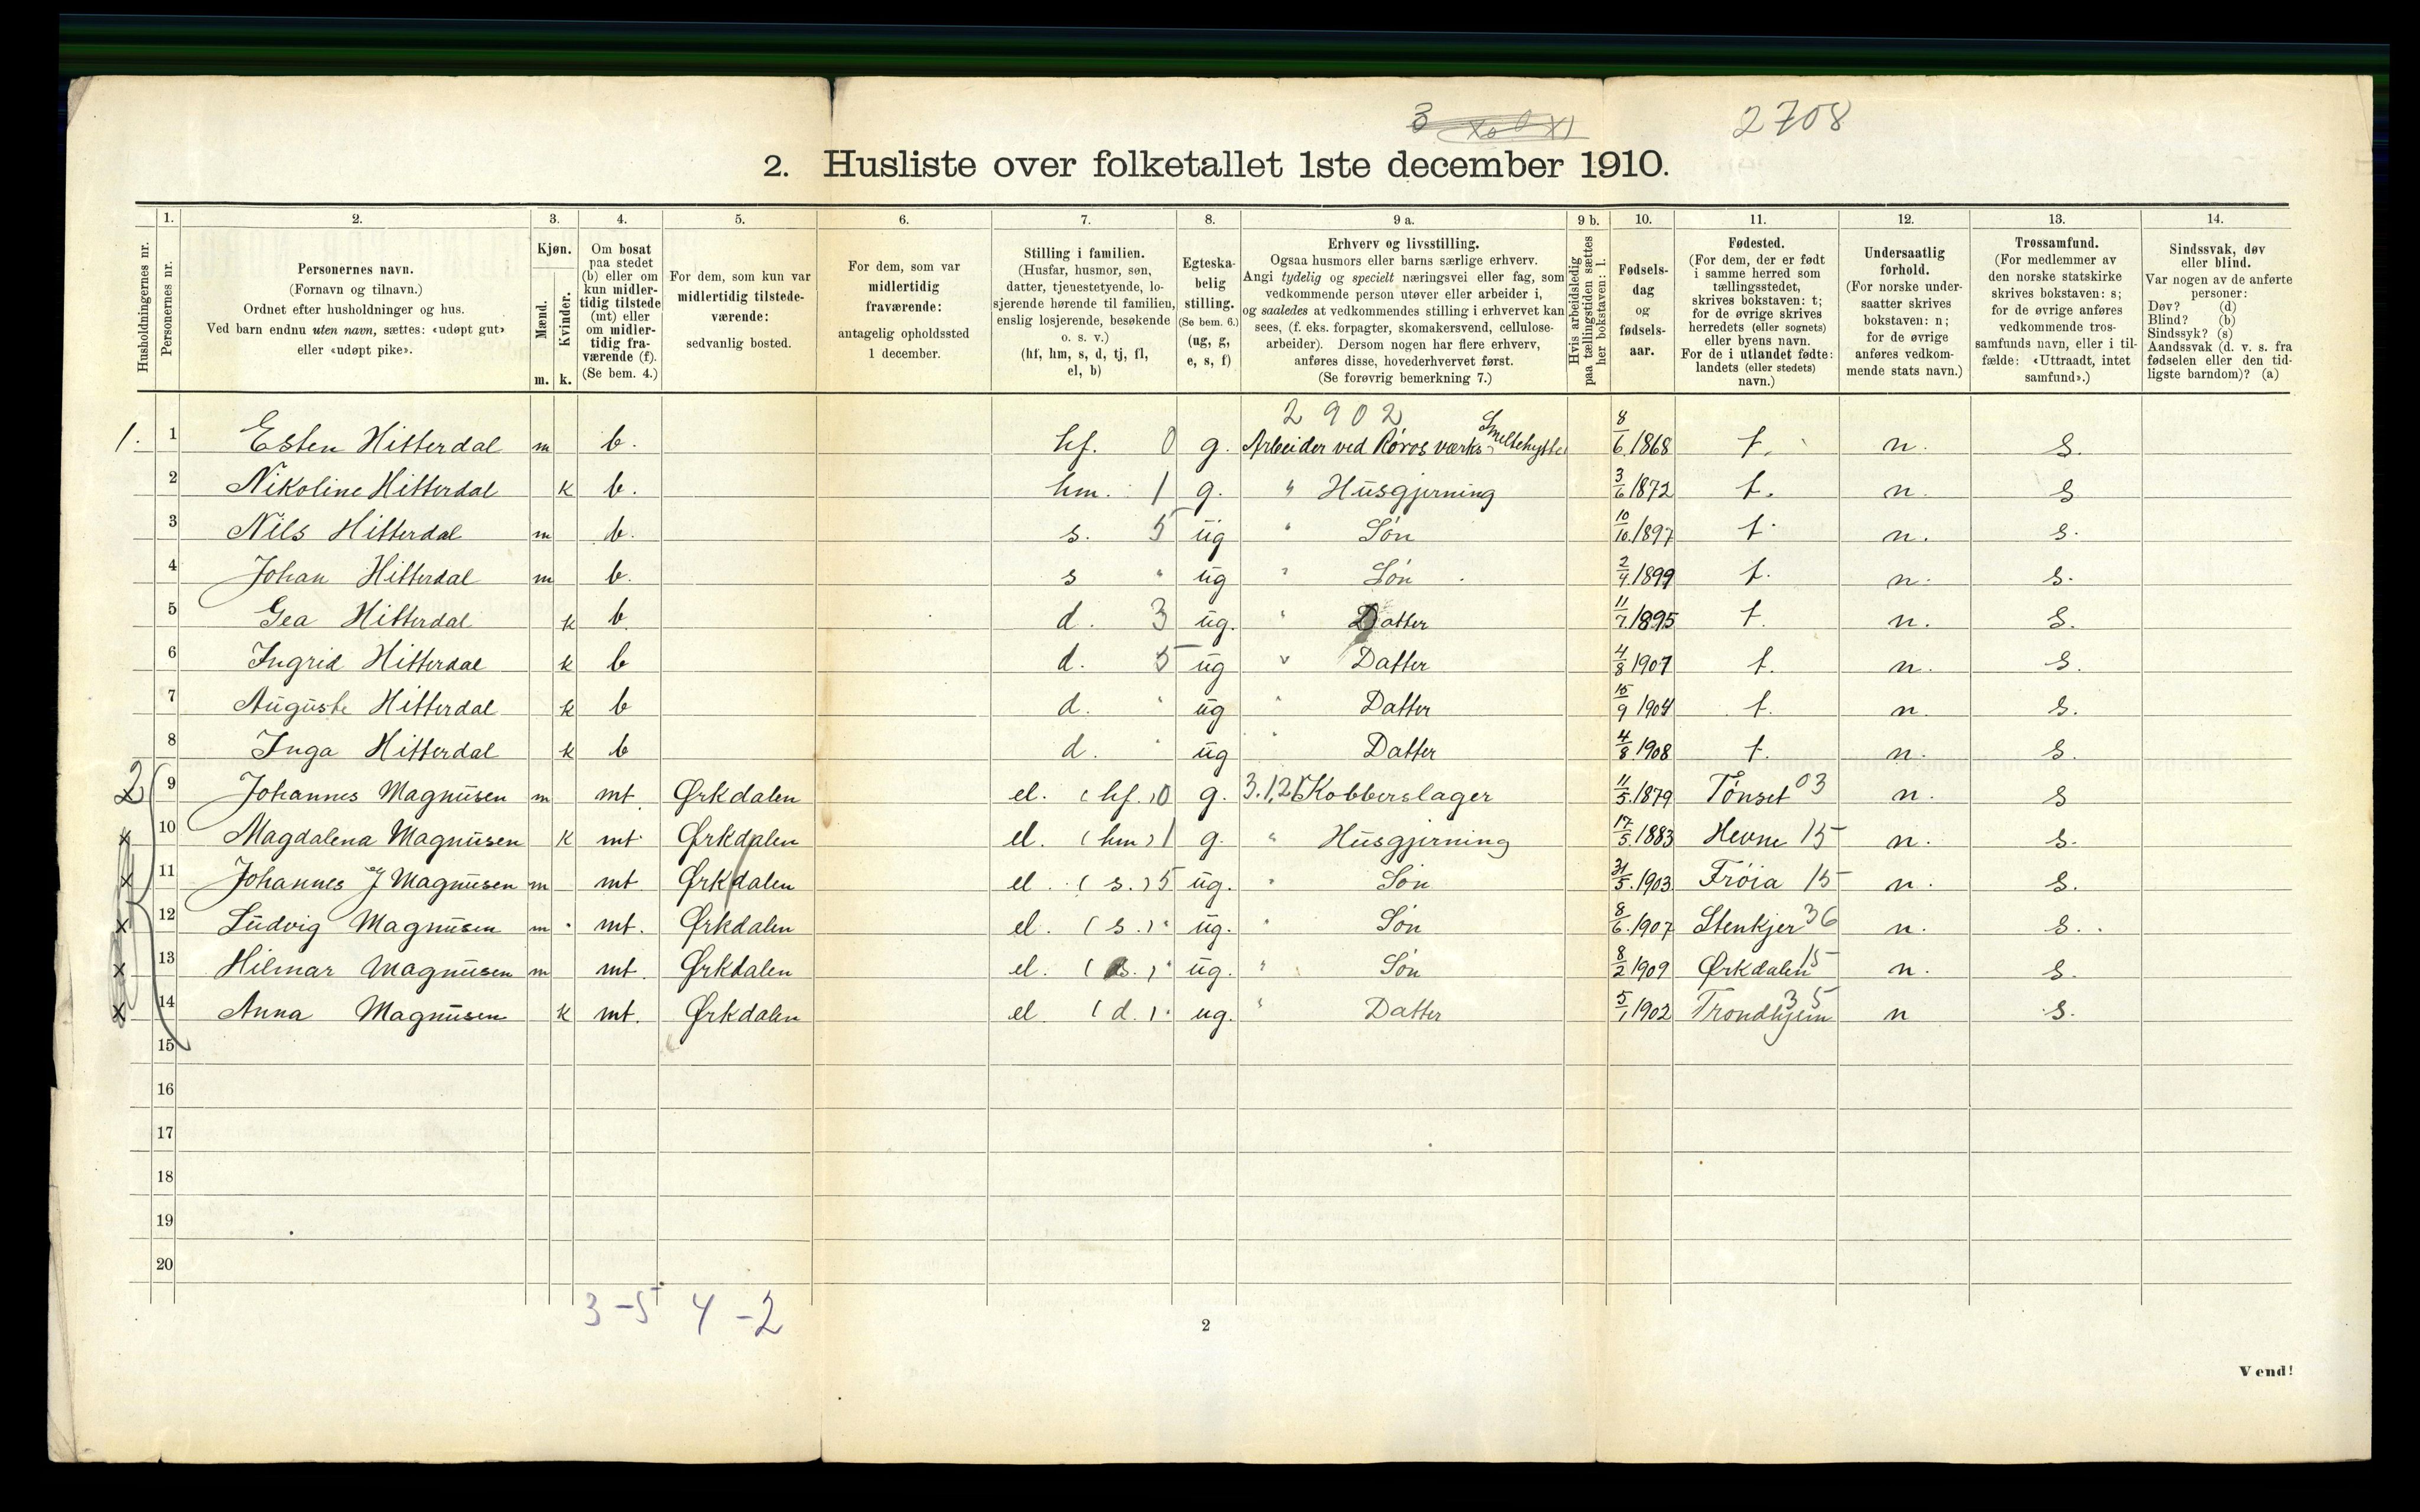 3
2708
2. Husliste over folketallet 1ste december 1910.
1. 2. 3. 4. 5. 6. 7. 8. 9 a. 9 b. 10. 11. 12. 13. 14.
Husholdningernes nr.
Personernes nr.
Personernes navn.
(Fornavn og tilnavn.)
Ordnet efter husholdninger og hus.
Ved barn endnu uten navn, sættes: «udøpt gut»
eller «udøpt pike».
Kjøn.
Mænd.
Kvinder.
m. k.
Om bosat
paa stedet
(b) eller om
kun midler-
tidig tilstede
(mt) eller
om midler-
tidig fra-
værende (f).
(Se bem. 4.)
For dem, som kun var
midlertidig tilstede-
værende:
sedvanlig bosted.
For dem, som var
midlertidig
fraværende:
antagelig opholdssted
1 december.
Stilling i familien.
(Husfar, husmor, søn,
datter, tjenestetyende, lo-
sjerende hørende til familien,
enslig losjerende, besøkende
o. s. v.)
(hf, hm, s, d, tj, fl,
el, b)
Egteska-
belig
stilling.
(Se bem. 6.)
(ug, g,
e, s, f)
Erhverv og livsstilling.
Ogsaa husmors eller barns særlige erhverv.
Angi tydelig og specielt næringsvei eller fag, som
vedkommende person utøver eller arbeider i,
og saaledes at vedkommendes stilling i erhvervet kan
sees, (f. eks. forpagter, skomakersvend, cellulose-
arbeider). Dersom nogen har flere erhverv,
anføres disse, hovederhvervet først.
(Se forøvrig bemerkning 7.)
Hvis arbeidsledig
paa tællingstiden sættes
her bokstaven: l.
Fødsels-
dag
og
fødsels-
aar.
Fødested.
(For dem, der er født
i samme herred som
tællingsstedet,
skrives bokstaven: t;
for de øvrige skrives
herredets (eller sognets)
eller byens navn.
For de i utlandet fødte:
landets (eller stedets)
navn.)
Undersaatlig
forhold.
(For norske under-
saatter skrives
bokstaven: n;
for de øvrige
anføres vedkom-
mende stats navn.)
Trossamfund.
(For medlemmer av
den norske statskirke
skrives bokstaven: s;
for de øvrige anføres
vedkommende tros-
samfunds navn, eller i til-
fælde: «Uttraadt, intet
samfund».)
Sindssvak, døv
eller blind.
Var nogen av de anførte
personer:
Døv? (d)
Blind? (b)
Sindssyk? (s)
Aandssvak (d. v. s. fra
fødselen eller den tid-
ligste barndom)? (a)
2902
1. 1 Esten Hitterdal m b. hf. 0 g. Arbeider ved Røros værks Smeltehytte 8/6 1868 t. n. s.
2 Nikoline Hitterdal k b. hm. 1 g. " Husgjerning 3/6 1872 t. n. s
3 Nils Hitterdal m b. s. 5 ug " Søn 10/10 1897 t. n. s.
4 Johan Hitterdal m b. s " ug " Søn 2/4 1899 t. n. s.
5 Gea Hitterdal k b d. 3 ug. " Datter 11/7 1895 t. n. s.
6 Ingrid Hitterdal k b d. 5 ug " Datter 4/8 1907 t. n. s.
7 Auguste Hitterdal k b d. " ug " Datter 15/9 1904 t. n. s.
8 Inga Hitterdal k b d. " ug " Datter 4/8 1908 t. n. s.
2 9 Johannes Magnusen m mt. Ørkdalen el. (hf.) 0 g. 3.1,21 Kobberslager 11/5 1879 Tønset 03 n. s
x 10 Magdalena Magnusen k mt Ørkdalen el. (hm) 1 g. " Husgjerning 17/5 1883 Hevne 15 n. s.
x 11 Johannes J Magnusen m mt Ørkdalen el. (s.) 5 ug. " Søn 31/5 1903 Frøia 15 n. s.
x 12 Ludvig Magnusen m mt. Ørkdalen el. (s.) " ug. " Søn 8/6 1907 Stenkjer 36 n. s.
x 13 Hilmar Magnusen m mt. Ørkdalen el. (s.) " ug. " Søn 8/2 1909 Ørkdalen 15 n. s.
x 14 Anna Magnusen k mt. Ørkdalen el (d.) " ug. " Datter 5/1 1902 Trondhjem 35 n s.
15
16
17
18
19
20
3-5 4-2
2
Vend!